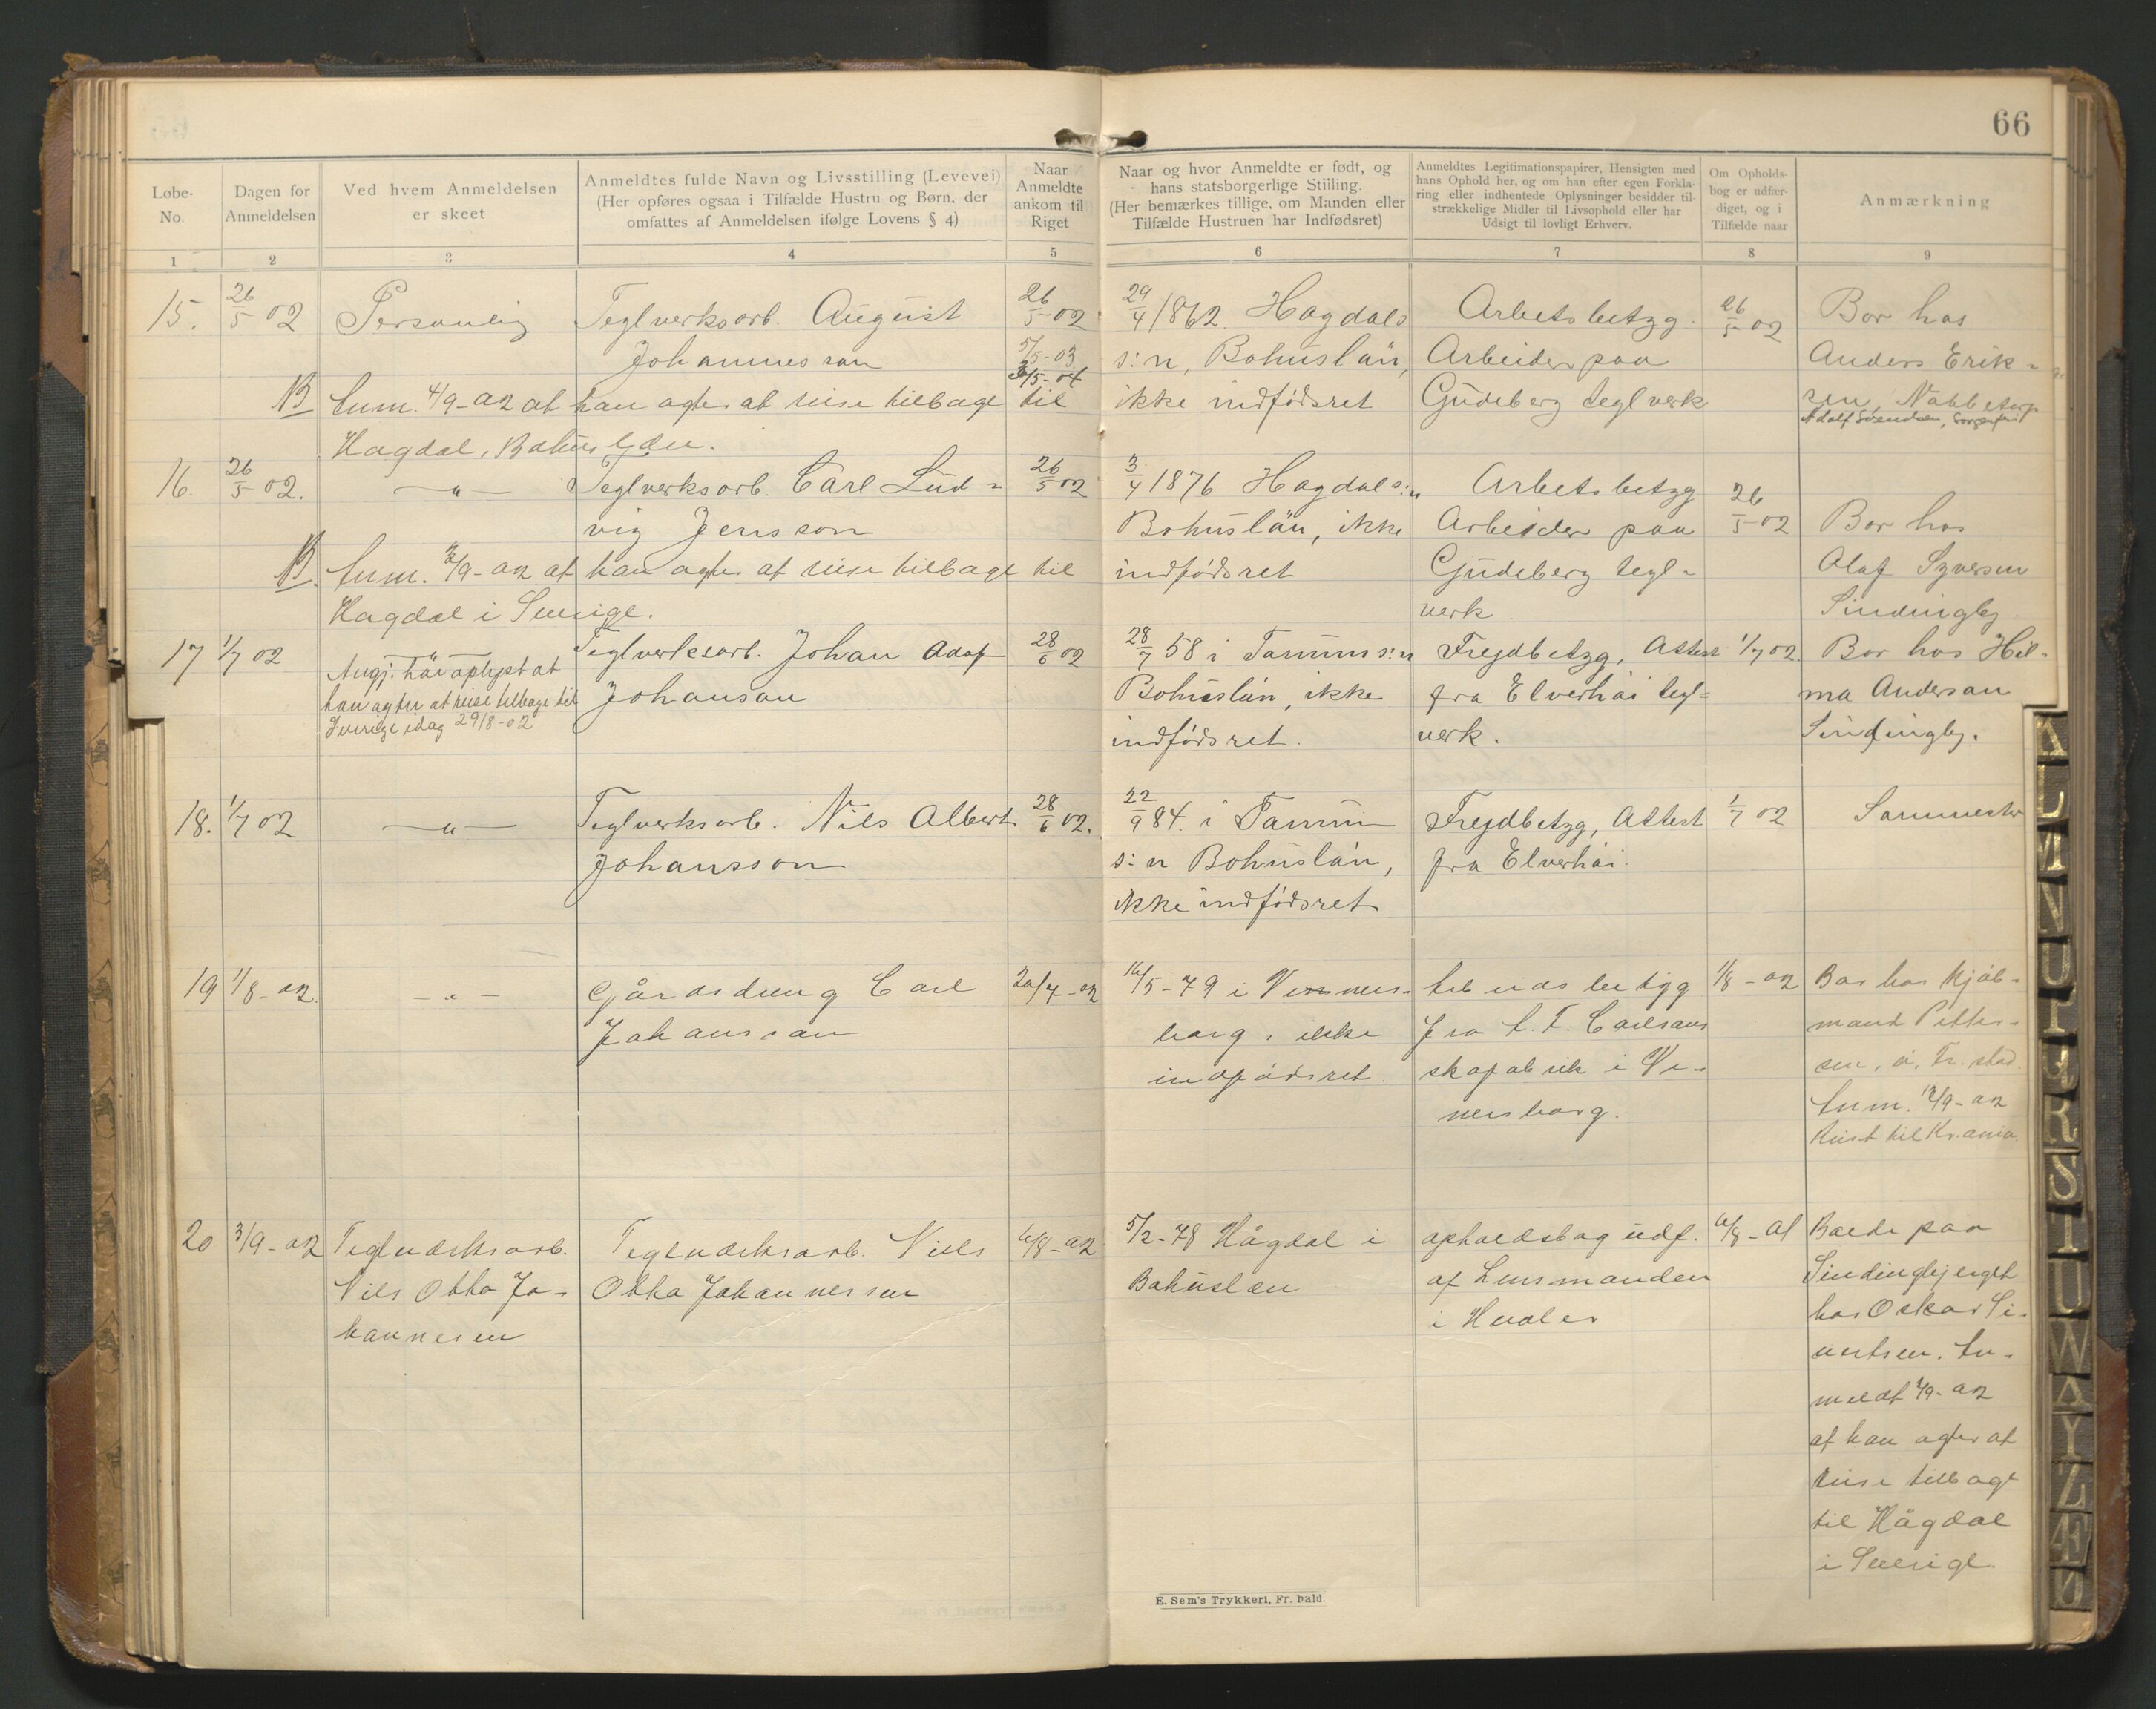 66
Løbe-
No.
Dagen for
Anmeldelsen
Ved hvem Anmeldelsen
er skeet
Anmeldtes fulde Navn og Livsstilling (Levevei)
(Her opføres ogsaa i Tilfælde Hustru og Børn, der
omfattes af Anmeldelsen ifølge Lovens § 4)
Naar
Anmeldte
ankom til
Riget
Naar og hvor Anmeldte er født, og
hans statsborgerlige Stilling.
(Her bemærkes tillige, om Manden eller
Tilfælde Hustruen har Indfødsret)
Anmeldtes Legitimationspapirer, Hensigten med
hans Ophold her, og om han efter egen Forkla-
ring eller indhentede Oplysninger besidder til-
strækkelige Midler til Livsophold eller har
Udsigt til lovligt Erhverv.
Om Opholds-
bog er udfær-
diget, og i
Tilfælde naar
Anmærkning
1 2 3 4 5 6 7 8 9
15.
26/5 02
Personlig
Teglverksarb. August
Johannesson
26/5-02
5/5-03
3/5-04
29/4 1862. Hogdals
s:n, Bohuslän,
ikke indfödsret
Arbetsbetyg.
Arbeider paa
Gudeberg teglverk
26/5-02
Bor hos
Anders Erik-
sen, Nabbetorp
Adolf Svendsen, Sorgenfri
Anm. 4/9-02 at han agter at reise tilbage til
Hogdal, Bohuslen.
16.
26/5 02.
—"—
Teglverksarb. Carl Lud-
vig Jensson
26/5 02
3/4 1876 Hogdal s:n
Bohuslän, ikke
indfödsret
Arbetsbetyg
Arbeider paa
Gudeberg tegl-
verk
26/5-02
Bor hos
Olaf Syversen
Sindingby
Anm. 3/9-02 at han agter at reise tilbage til
Hogdal i Sverige.
17
1/7 02
—"—
Angj. har oplyst at
han agter at reise tilbage til
Sverige idag 29/8-02
Teglverksarb. Johan Adof
Johanson
28/6 02
28/7 58 i Tanum s:n
Bohuslän, ikke
indfödsret.
Frejdbetyg, Attest
fra Elverhöi tegl-
verk.
1/7 02.
Bor hos Hil-
ma Anderson
Sindingby.
18.
1/7 02
—"—
Teglverksarb. Nils Albert
Johansson
28/6 02.
22/9 84. i Tanum
s:n Bohuslän,
ikke indfödsret
Frejdbetyg, Attest
fra Elverhöi.
1/7 02
Sammesteds
19
1/8-02.
-"-
Gårdsdreng Carl
Johansson
20/7-02
16/5-79 i Venners-
borg, ikke
indfödsret.
fra C. F. Carlsons
skofabrik i Ve-
nersborg.
1/8-02
Bor hos Hjal-
mant Petter-
sen, ö. Fr.stad.
Anm. 12/9-02
Reist til Kr.ania.
20
3/9-02
Teglverksarb.
Nils Otto Jo-
hannesen
Teglverksarb. Nils
Otto Johannessen
6/8-02
5/2-78 Högdal i
Bohuslen
opholdsbog udf.
af Lensmanden
i Hvaler
6/8-01
Boede paa
Sindingbjerget
hos Oskar Si-
vertsen. An-
meldt 3/9-02
at han agter at
reise tilbage
til Högdal
i Sverige.
E. Sem's Trykkeri, Fr. hald.
K
L
M
N
O
P
R
S
T
U
W
A
Y
Z
Æ
Ø